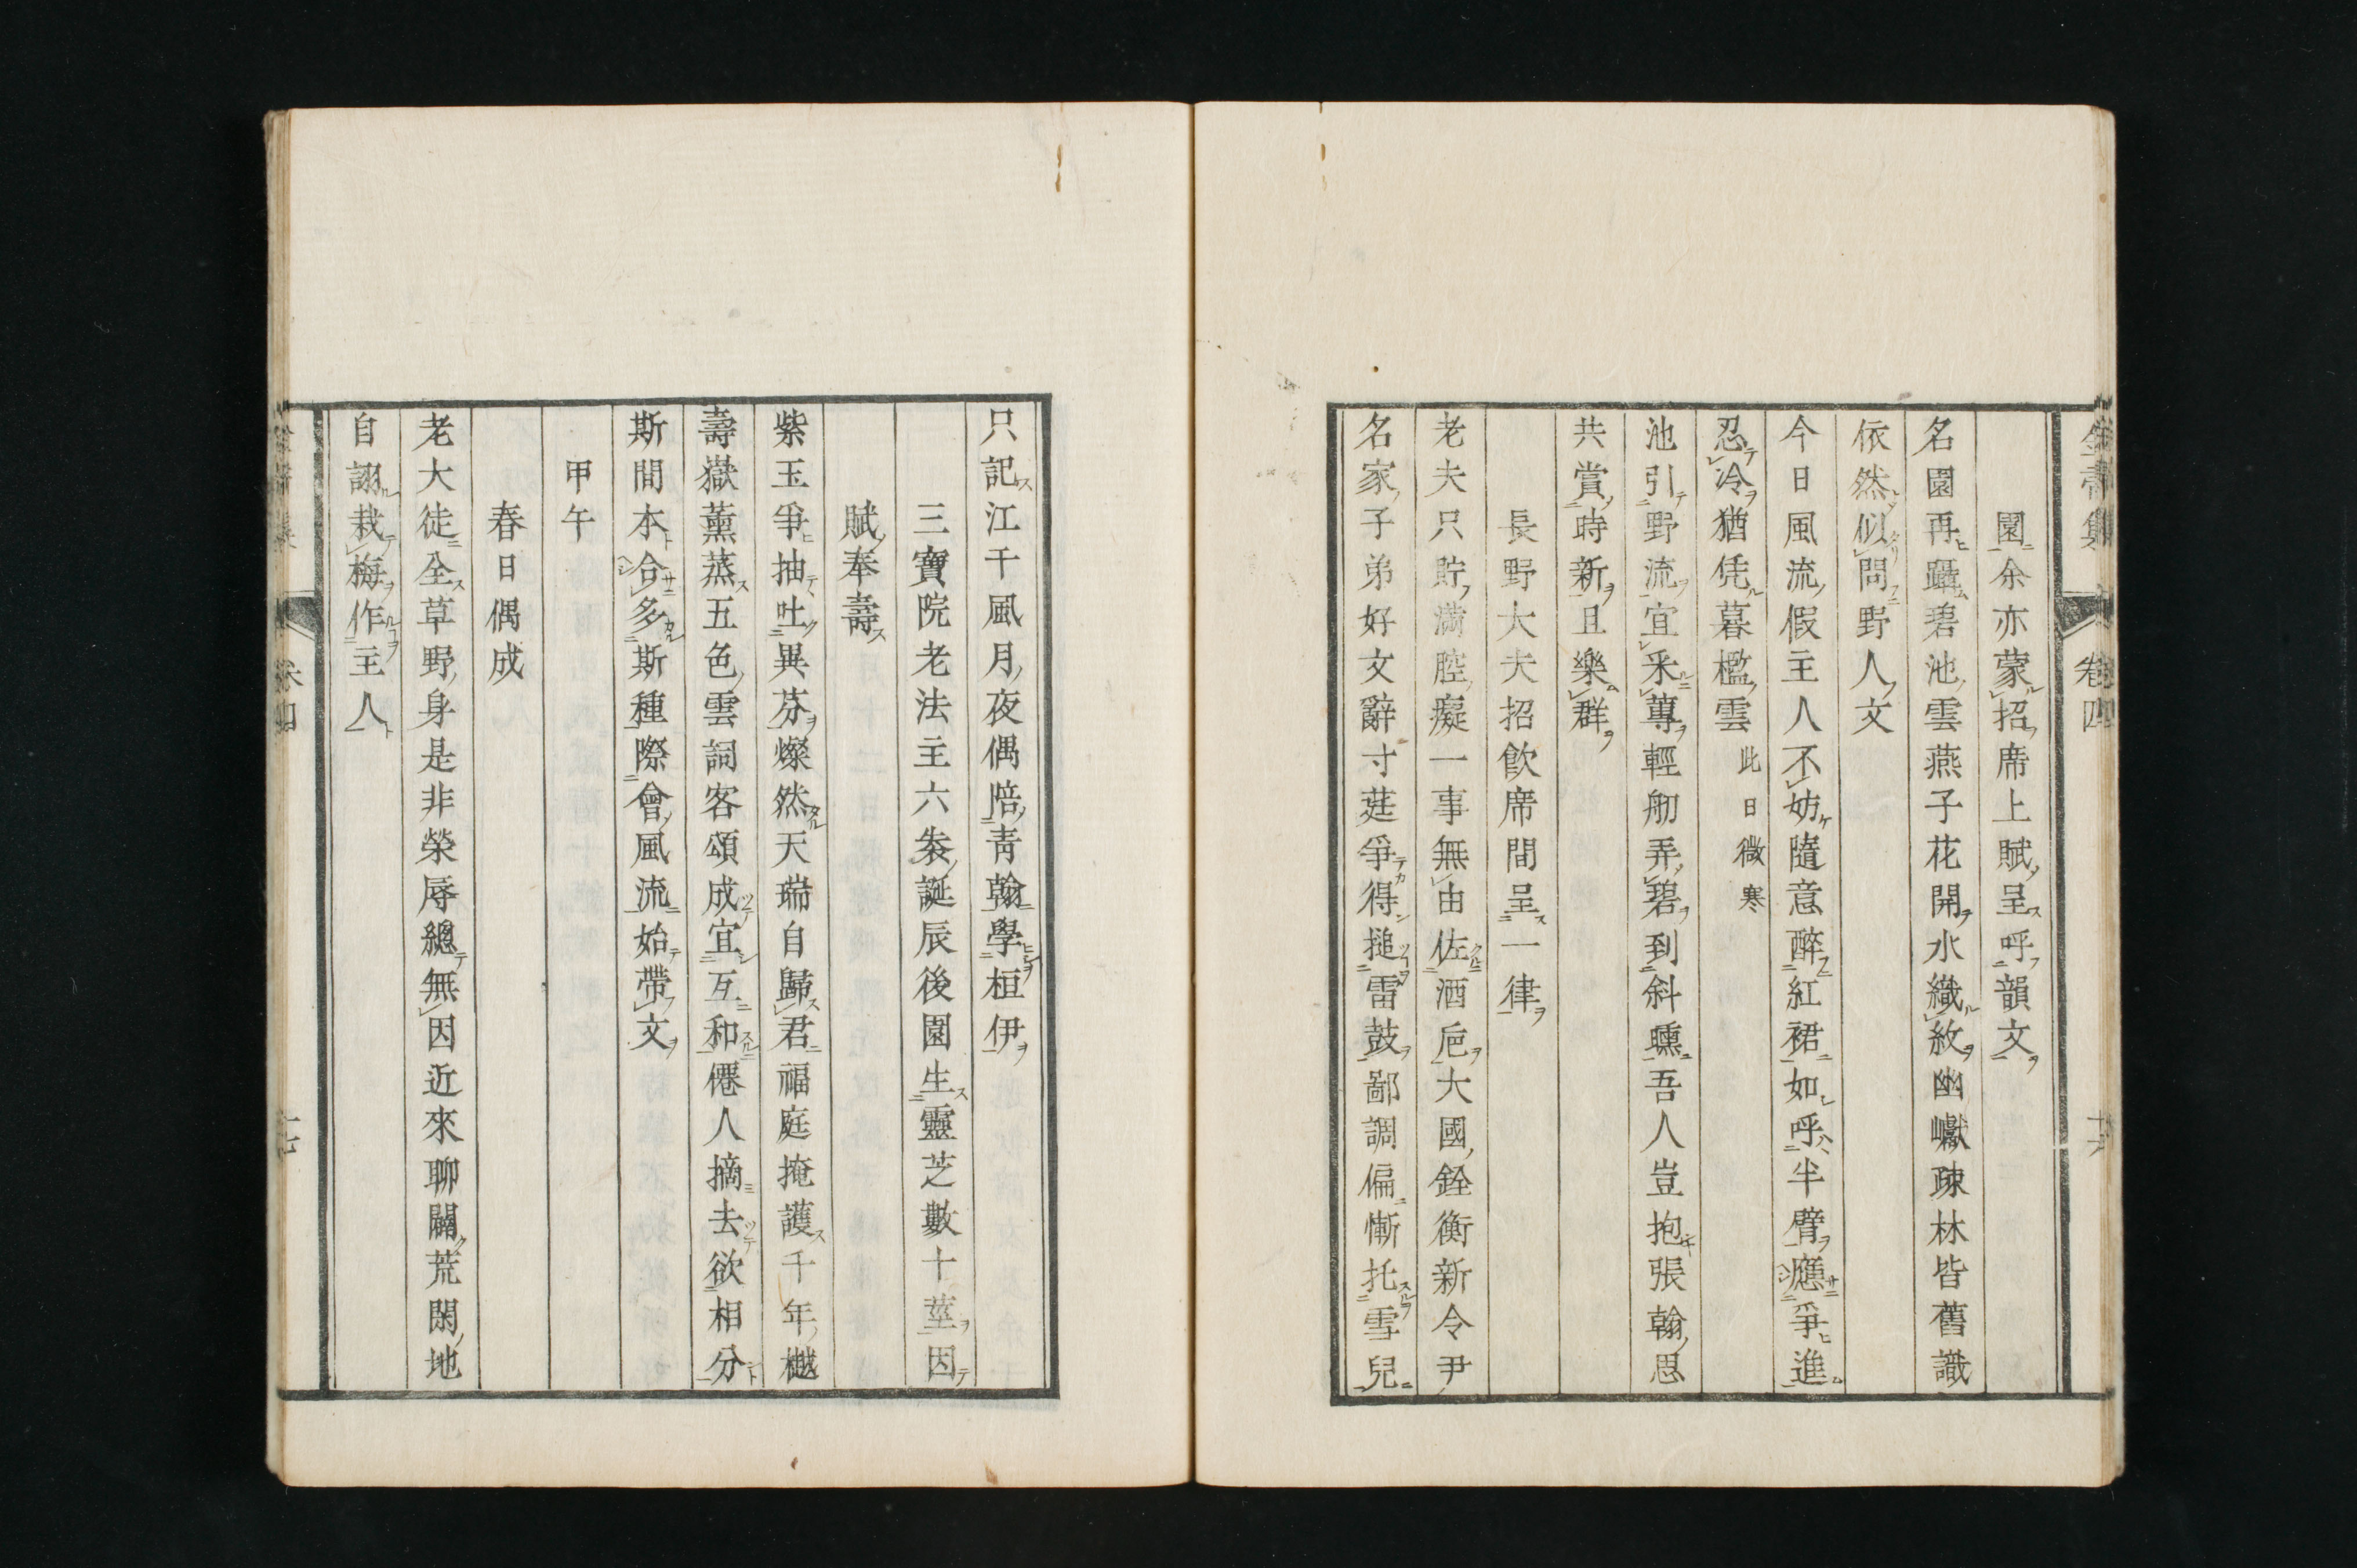 園余亦蒙招席上賦呈呼韻文
名園再躡碧池雲燕子花開水織紋幽巘疎林皆舊識
依然似問野人文
今日風流假主人不妨隨意醉紅裙如呼半臂應爭進
忍冷猶凭暮檻雲此日微寒
池引野流宜采蓴輕舠弄碧到斜曛吾人豈抱張翰思
共賞時新且樂群
長野大夫招飲席間呈一律
老夫只貯滿腔癡一事無由佐酒巵大國銓衡新令尹
名家子弟好文辭寸莛爭得搥雷鼓鄙調偏慚托雪兒
只記江干風月夜偶陪青翰學桓伊
三寶院老法主六袠誕辰後園生靈芝數十莖因
賦奉壽
紫玉爭抽吐異芬燦然天瑞自歸君福庭掩護千年樾
壽嶽薰蒸五色雲詞客頌成宜互和僊人摘去欲相分
斯間本合多斯種際會風流始帶文
甲午
春日偶成
老大徒全草野身是非榮辱總無因近來聊闢荒閑地
自詡栽梅作主人
卷四